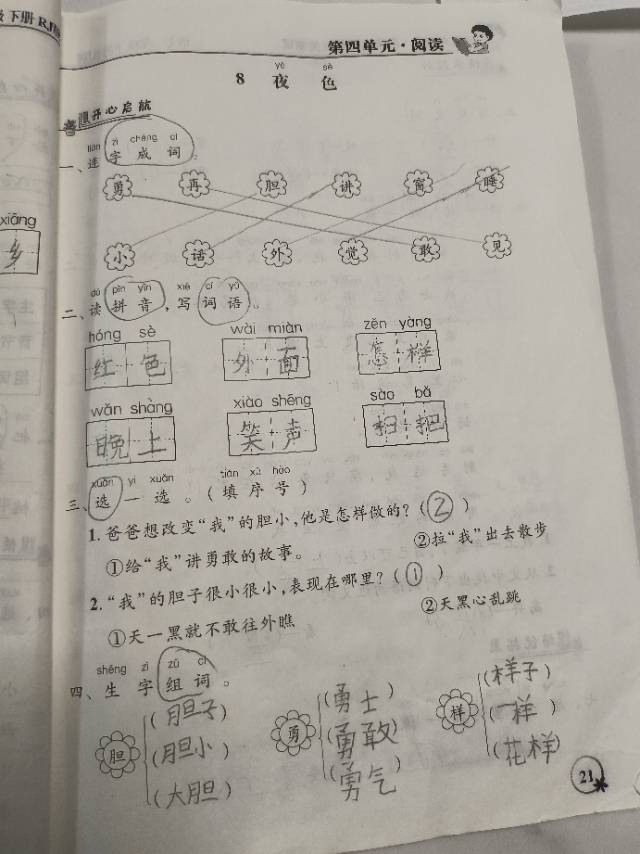 下册 RJ
第四单元·阅读
yè sè
8 夜 色
开心启航
lián zì chéng cí
一、连字成词。
勇 再 胆 讲 窗 睡
小 话 外 觉 敢 见
dú pīn yīn xiě cí yǔ
二、读拼音,写词语。
xiāng
乡
hóng sè wài miàn zěn yàng
红色 外面 怎样
wǎn shàng xiào shēng sào bǎ
晚上 笑声 扫把
xuǎn yi xuǎn tián xù hào
三、选一选。(填序号)
1.爸爸想改变“我”的胆小,他是怎样做的?(②)
①给“我”讲勇敢的故事。 ②拉“我”出去散步
2.“我”的胆子很小很小,表现在哪里?(①)
①天一黑就不敢往外瞧 ②天黑心乱跳
shēng zì zǔ cí
四、生字组词。
(胆子) (勇士) (样子)
胆 (胆小) 勇 (勇敢) 样 (一样)
(大胆) (勇气) (花样)
21